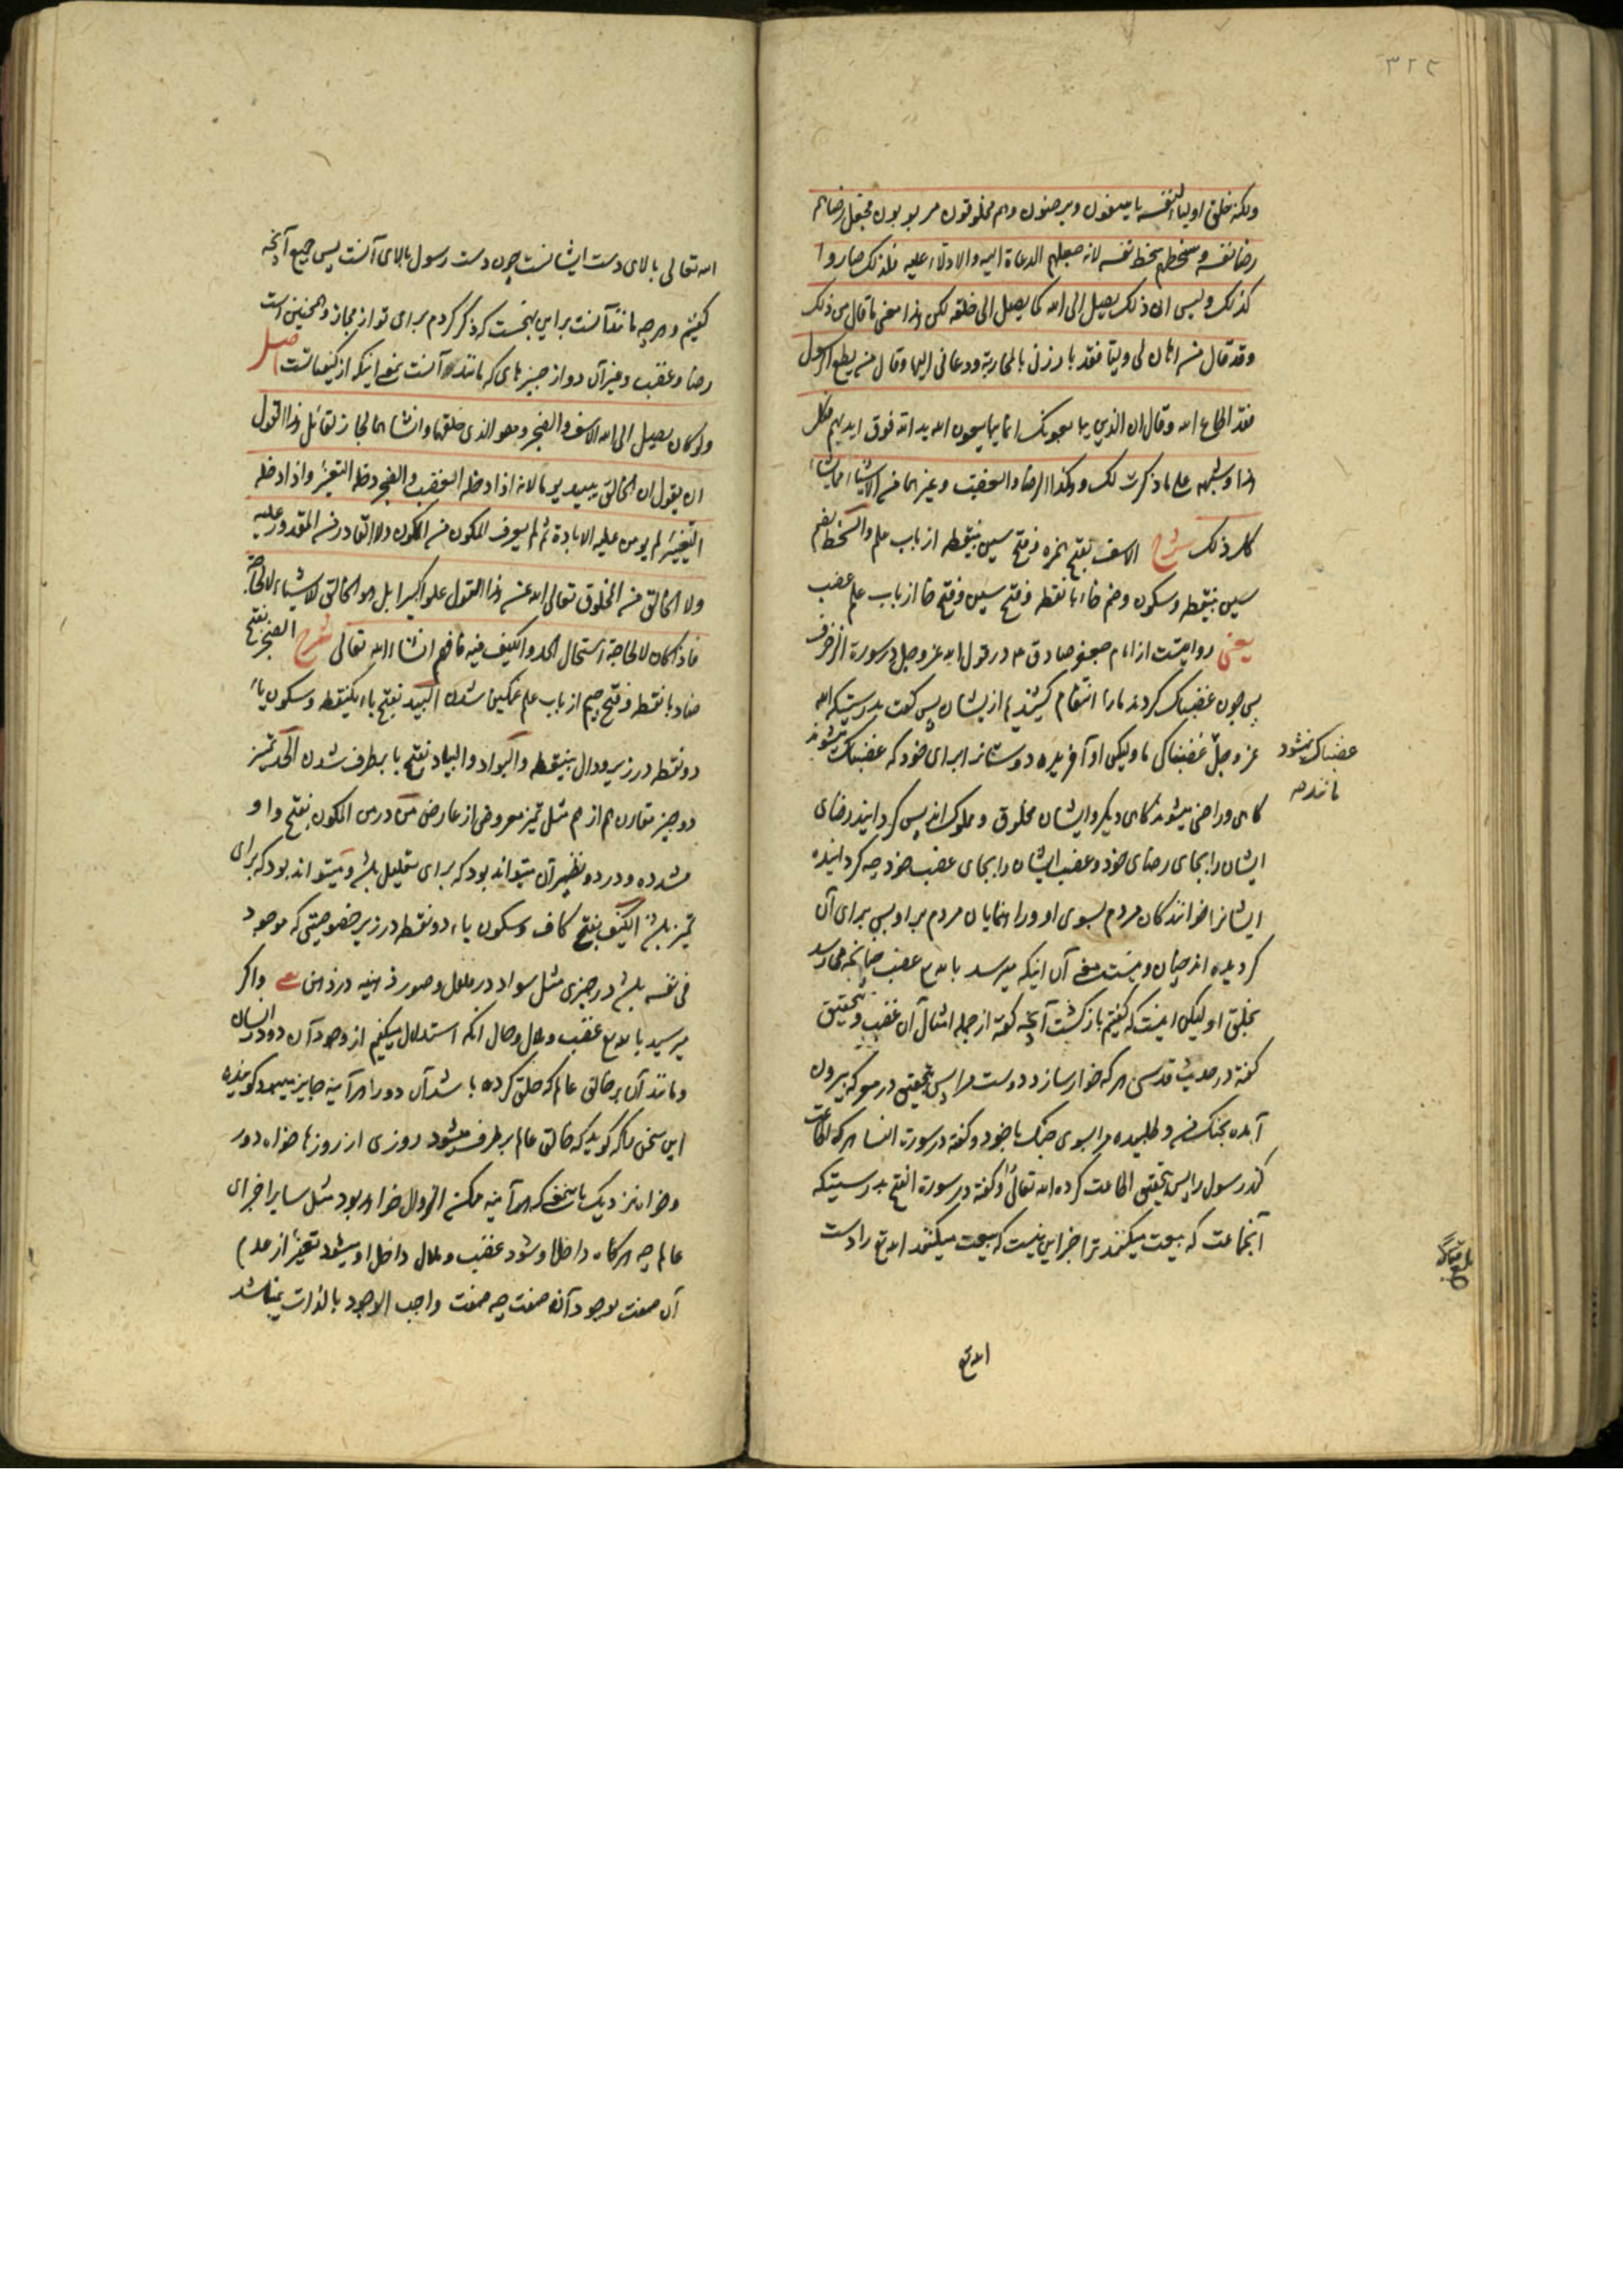 ۳۲۲
ولکنه خلق اولیاء لنفسه یاسفون ویرضون وهم مخلوقون مربوبون فجعل رضاهم
رضا نفسه وسخطهم سخط نفسه لانه جعلهم الدعاة الیه والادلاء علیه فلذلک صاروا
کذلک ولیس ان ذلک یصل الی الله کما یصل الی خلقه لکن هذا معنی ما قال من ذلک
وقد قال من اهان لی ولیا فقد بارزنی بالمحاربة ودعانی الیها وقال من یطع الرسول
فقد اطاع الله وقال ان الذین یبایعونک انما یبایعون الله ید الله فوق ایدیهم فکل
هذا وشبهه علی ما ذکرت لک وهکذا الرضا والغضب وغیرهما من الاشیاء مما یشاکل
ذلک شرح الاسف بفتح همزه وفتح سین بینقطه از باب علم والسخط بضم
سین بینقطه وسکون وضم خاء بانقطه وفتح سین وفتح خا از باب علم غضب
یعنی روایتست از امام جعفر صادق ع در قول الله عز وجل در سورة الزخرف
پس چون غضبناک کردند ما را انتقام کشیدیم ازیشان پس گفت بدرستیکه الله
عز وجل غضبناک نمیشود مانند غضبناکی ما ولیکن او آفریده دوستانرا برای خود که غضبناک میشوند
گاهی وراضی میشوند گاهی دیگر وایشان مخلوق ومملوک اند پس گردانید رضای
ایشان را بجای رضای خود وغضب ایشان را بجای غضب خود چه گردانیده
ایشانرا خوانندگان مردم بسوی او وراهنمایان مردم بر او پس برای آن
گردیده اند چنان ونیست معنی آن اینکه میرسد بالله تع غضب چنانچه میرسد
بخلق او لیکن اینست که گفتیم بازگشت آنچه گفته از جمله امثال آن غضب وبتحقیق
گفته در حدیث قدسی هر که خوار سازد دوست مرا پس بتحقیق در معرکه بیرون
آمده بجنگ من وطلبیده مرا بسوی جنگ با خود وگفته در سورة النسا هر که اطاعت
کند رسول را پس بتحقیق اطاعت کرده الله تعالی را وگفته در سورة الفتح بدرستیکه
آنجماعت که بیعت میکنند ترا جز این نیست که بیعت میکنند الله تع را دست
الله تع
الله تعالی بالای دست ایشانست چون دست رسول بالای آنست پس جمیع آنچه
گفتیم وهر چه مانند آنست براین نهجست که ذکر کردم برای تو از مجاز وهمچنین است
رضا وغضب وغیر آن دو از چیزهای که مانند آنست بمعنی اینکه از کیفیاتست اصل
ولو کان یصل الی الله الاسف والضجر وهو الذی خلقهما وانشاهما لجاز لقائل هذا القول
ان یقول ان الخالق یبید یوما لانه اذا دخله الغضب والضجر دخله التغییر واذا دخله
التغییر لم یومن علیه الابادة ثم لم یعرف المکون من المکون ولا القادر من المقدور علیه
ولا الخالق من المخلوق تعالی الله عن هذا القول علوا کبیرا بل هو الخالق للاشیاء لا لحاجة
فاذا کان لا لحاجة استحال الحد والکیف فیه فافهم انشاء الله تعالی شرح الضجر بفتح
ضاد بانقطه وفتح جیم از باب علم غمگین شدن البید بفتح باء یکنقطه وسکون یاء
دونقطه در زیر ودال بینقطه والبواد والبیاد بفتح با برطرف شدن الحد تمیز
دو چیز مقارن هم از هم مثل تمیز معروض از عارض من در من المکون بفتح واو
مشدده ودر دو نظیر آن میتواند بود که برای تعلیل باشد ومیتواند بود که برای
تمیز باشد الکیف بفتح کاف وسکون یاء دونقطه در زیر خصوصیتی که موجود
فی نفسه باشد در چیزی مثل سواد در جسم وصور ذهنیه در ذهن یعنی واگر
میرسید بالله تع غضب وملال وحال آنکه استدلال میکنیم از وجود آن دو در انسان
ومانند آن بر خالق عالم که خلق کرده باشد آن دو را هر آینه جایز میبود گوینده
این سخن را که گوید که خالق عالم برطرف میشود روزی از روزها خواه دور
وخواه نزدیک باین معنی که هر آینه ممکن الزوال خواهد بود مثل سایر اجزای
عالم چه هر گاه داخل او شود غضب وملال داخل او میشود تغیر از عدم
آن صفت بوجود آن صفت چه صفت واجب الوجود بالذات نمیباشد